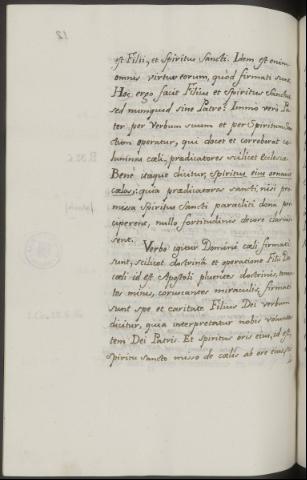 12
est Filii, et Spiritus Sancti. Idem est enim
omnis virtus eorum, quòd firmati sunt
Hoc ergo facit Filius et Spiritus Sanctus
sed nunquid sine Patre? Immo verò Pa
ter per Verbum suum et per Spiritum San
ctum operatur, qui docet et corroborat co
lumnas cæli, prædicatores scilicet Ecclesiæ.
Benè itaque dicitur, Spiritus eius ornavit
cælos: quia prædicatores sancti, nisi pro
missa Spiritus Sancti paracliti dona per
ciperent, nullo fortitudinis decore clarui
ssent.
Verbo igitur Domini cæli firmati
sunt, scilicet doctrinâ et operatione Filii Dei
cæli id est Apostoli pluentes doctrinis, tonan
tes minis, coruscantes miraculis, firmati
sunt spe et caritate Filius Dei verbum
dicitur, quia interpretatur nobis volunta
tem Dei Patris. Et spiritus oris eius, id est,
spiritu sancto misso de cælis ab ore eius,